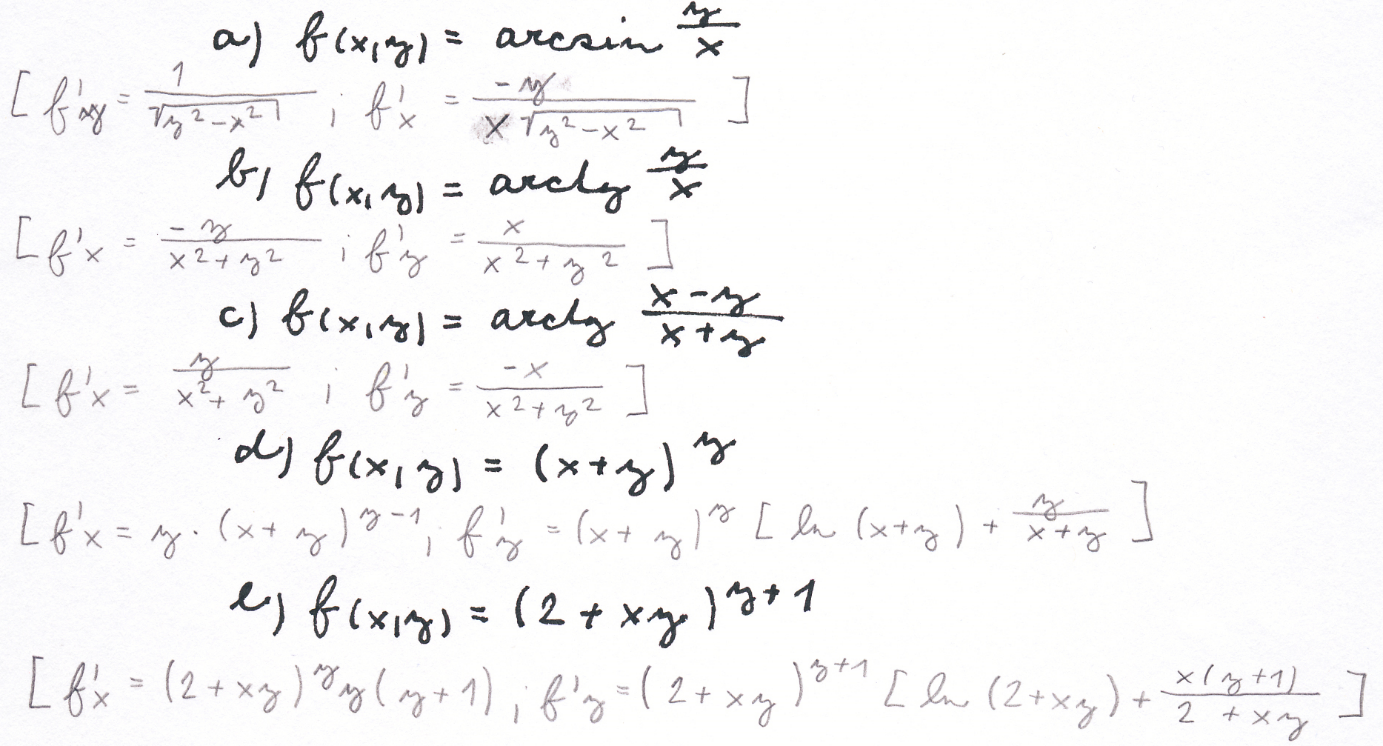 a) f(x,y) = arcsin y/x
[ f'xy = 1/√(y²-x²) ; f'x = -y/(x√(y²-x²)) ]
b) f(x,y) = arctg y/x
[ f'x = -y/(x²+y²) ; f'y = x/(x²+y²) ]
c) f(x,y) = arctg (x-y)/(x+y)
[ f'x = y/(x²+y²) ; f'y = -x/(x²+y²) ]
d) f(x,y) = (x+y)^y
[ f'x = y·(x+y)^(y-1) ; f'y = (x+y)^y [ ln (x+y) + y/(x+y) ]
e) f(x,y) = (2+xy)^(y+1)
[ f'x = (2+xy)^y y(y+1) ; f'y = (2+xy)^(y+1) [ ln (2+xy) + x(y+1)/(2+xy) ]